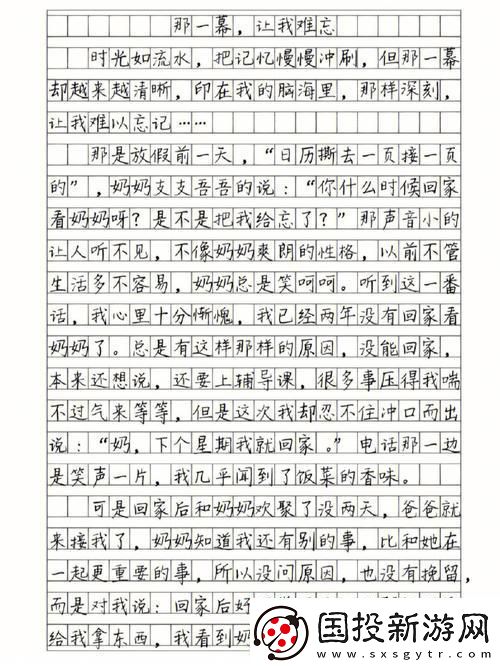 那一幕，让我难忘
时光如流水，把记忆慢慢冲刷，但那一幕
却越来越清晰，印在我的脑海里，那样深刻，
让我难以忘记……
那是放假前一天，“日历撕去一页接一页
的”，妈妈支支吾吾的说：“你什么时候回家
看妈妈呀？是不是把我给忘了？”那声音小的
让人听不见，不像妈妈爽朗的性格，以前不管
生活多不容易，妈妈总是笑呵呵。听到这一番
话，我心里十分惭愧，我已经两年没有回家看
妈妈了。总是有这样那样的原因，没能回家，
本来还想说，还要上辅导课，很多事压得我喘
不过气来等等，但是这次我却忍不住冲口而出
说：“妈，下个星期我就回家。”电话那一边
是笑声一片，我几乎闻到了饭菜的香味。
可是回家后和妈妈欢聚了没两天，爸爸就
来接我了，妈妈知道我还有别的事，比和她在
一起更重要的事，所以没问原因，也没有挽留，
而是对我说：回家后好
给我拿东西，我看到妈
国投新游网
www.sxsgytr.com